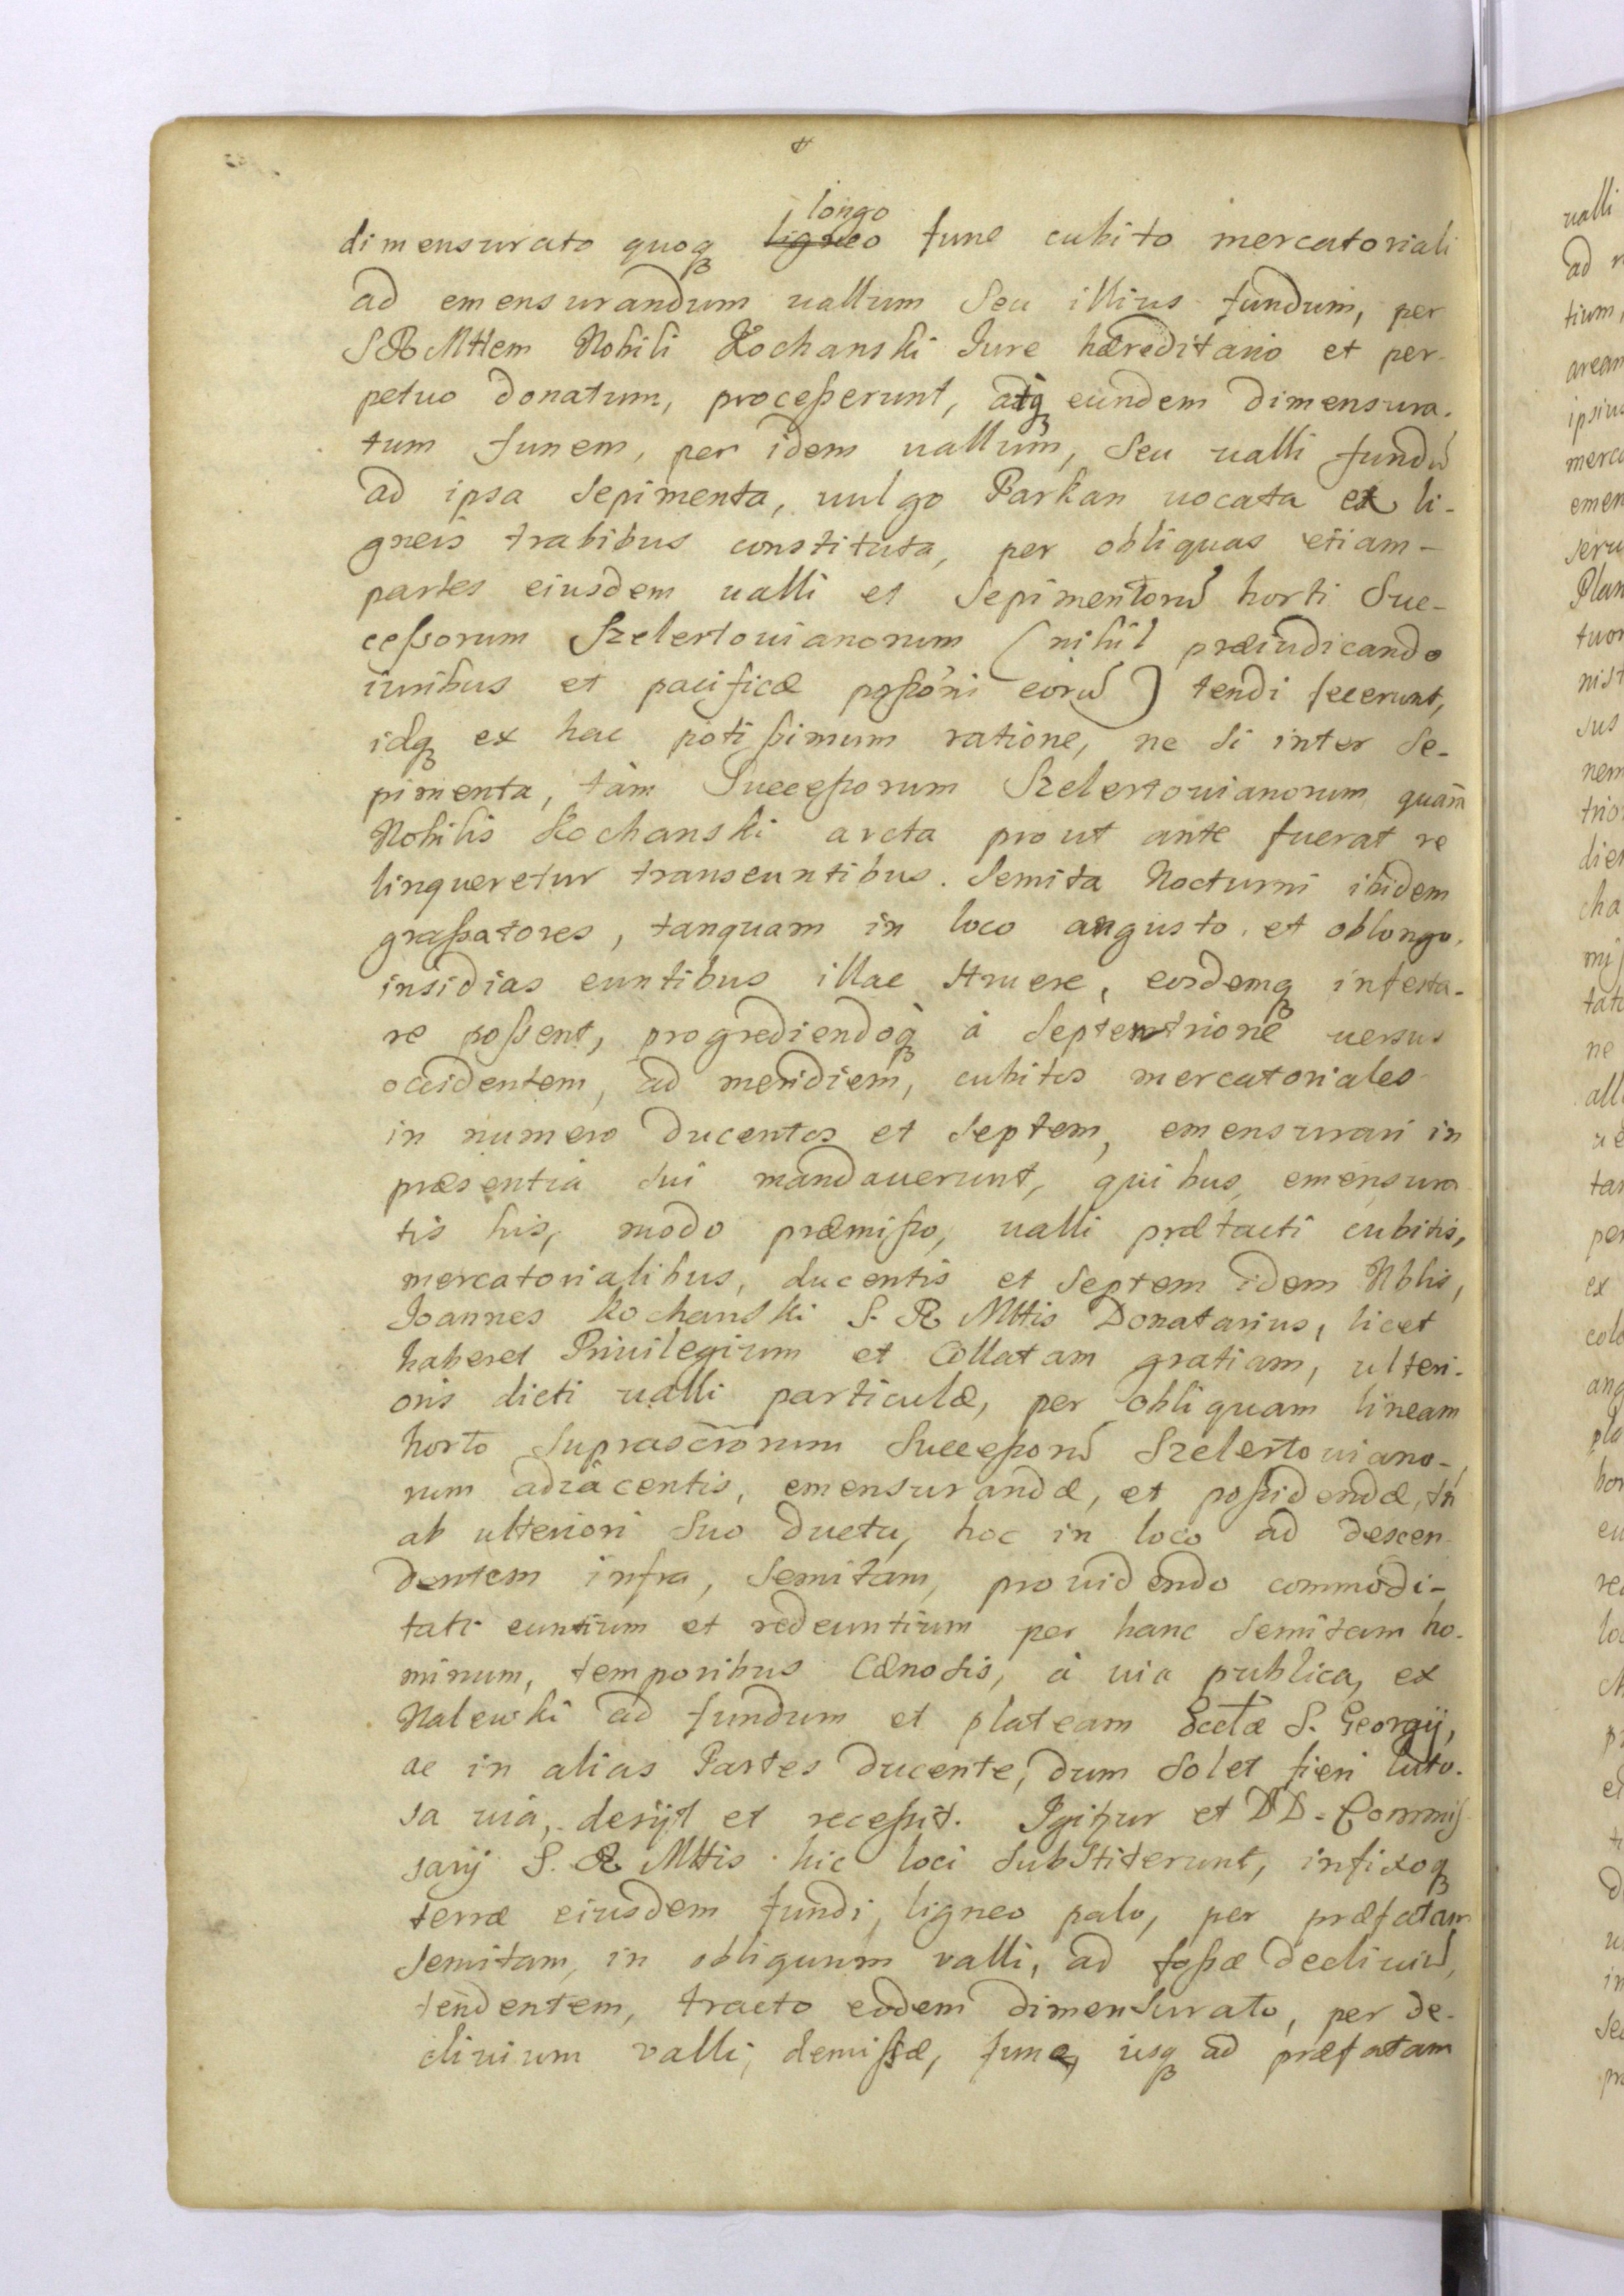 longo
dimensurato quoq ligneo fune cubito mercatoriali
ad emensurandum uallum Seu illius fundum, per
SRMttem Nobili Kochanski Jure hæreditario et per-
petuo donatum, proceßerunt, atq eundem dimensura-
tum funem, per idem uallum, Seu ualli fundū
ad ipsa Sepimenta, uulgo Parkan uocata ex li-
gneis trabibus constituta, per obliquas etiam
partes eiusdem ualli et Sepimentorū horti Suc-
ceßorum Szelertouianorum (nihil præiudicando
iuribus et pacificæ poßōni eorū) tendi fecerunt,
idq ex hac potißimum ratione, ne Si inter Se-
pimenta, tàm Succeßorum Szelertouianorum quàm
Nobilis Kochanski arcta prout ante fuerat re
linqueretur transeuntibus. Semita Nocturni ibidem
graßatores, tanquam in loco angusto et oblongo,
insidias euntibus illac Struere, eosdemq infesta-
re poßent, progrediendoq à Septemtrione uersus
occidentem, ad meridiem, cubitos mercatoriales
in numero ducentos et Septem, emensurari in
præsentia Sui mandauerunt, quibus emensura
tis his, modo præmißo, ualli prætacti cubitis,
mercatorialibus, ducentis et Septem idem Nblis,
Joannes Kochanski S. R Mttis Donatarius, licet
haberet Priuilegium et Collatam gratiam, ulteri-
oris dicti ualli particulæ, per obliquam lineam
horto Suprascrōrum Succeßorū Szelertouiano-
rum adiacentis, emensurandæ, et poßidendæ, tn
ab ulteriori Suo ductu, hoc in loco ad descen
dentem infra, Semitam, prouidendo commodi-
tati euntium et redeuntium per hanc Semitam ho-
minum, temporibus Cænosis, à uia publica, ex
Nalewki ad fundum et plateam Eccłæ S. Georgij,
ac in alias Partes ducente, dum Solet fieri luto-
sa uia, desijt et receßit. Igitur et DD. Commiſ-
sarij S. R Mttis hic loci Substiterunt, infixoq
terræ eiusdem fundi, ligneo palo, per præfatam
Semitam, in obliquum valli, ad foßæ decliuiū,
tendentem, tracto eodem dimensurato, per de-
cliuium valli, demißæ, fune, usq ad præfatam